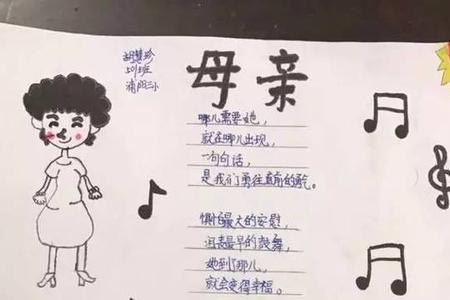 母亲
胡慧珍
501班
浦阳三小
哪儿需要她，
就在哪儿出现，
一句句话，
是我们勇往直前的勇气。
惧怕最大的安慰，
沮丧最早的鼓舞，
她到了那儿，
就会变得幸福。